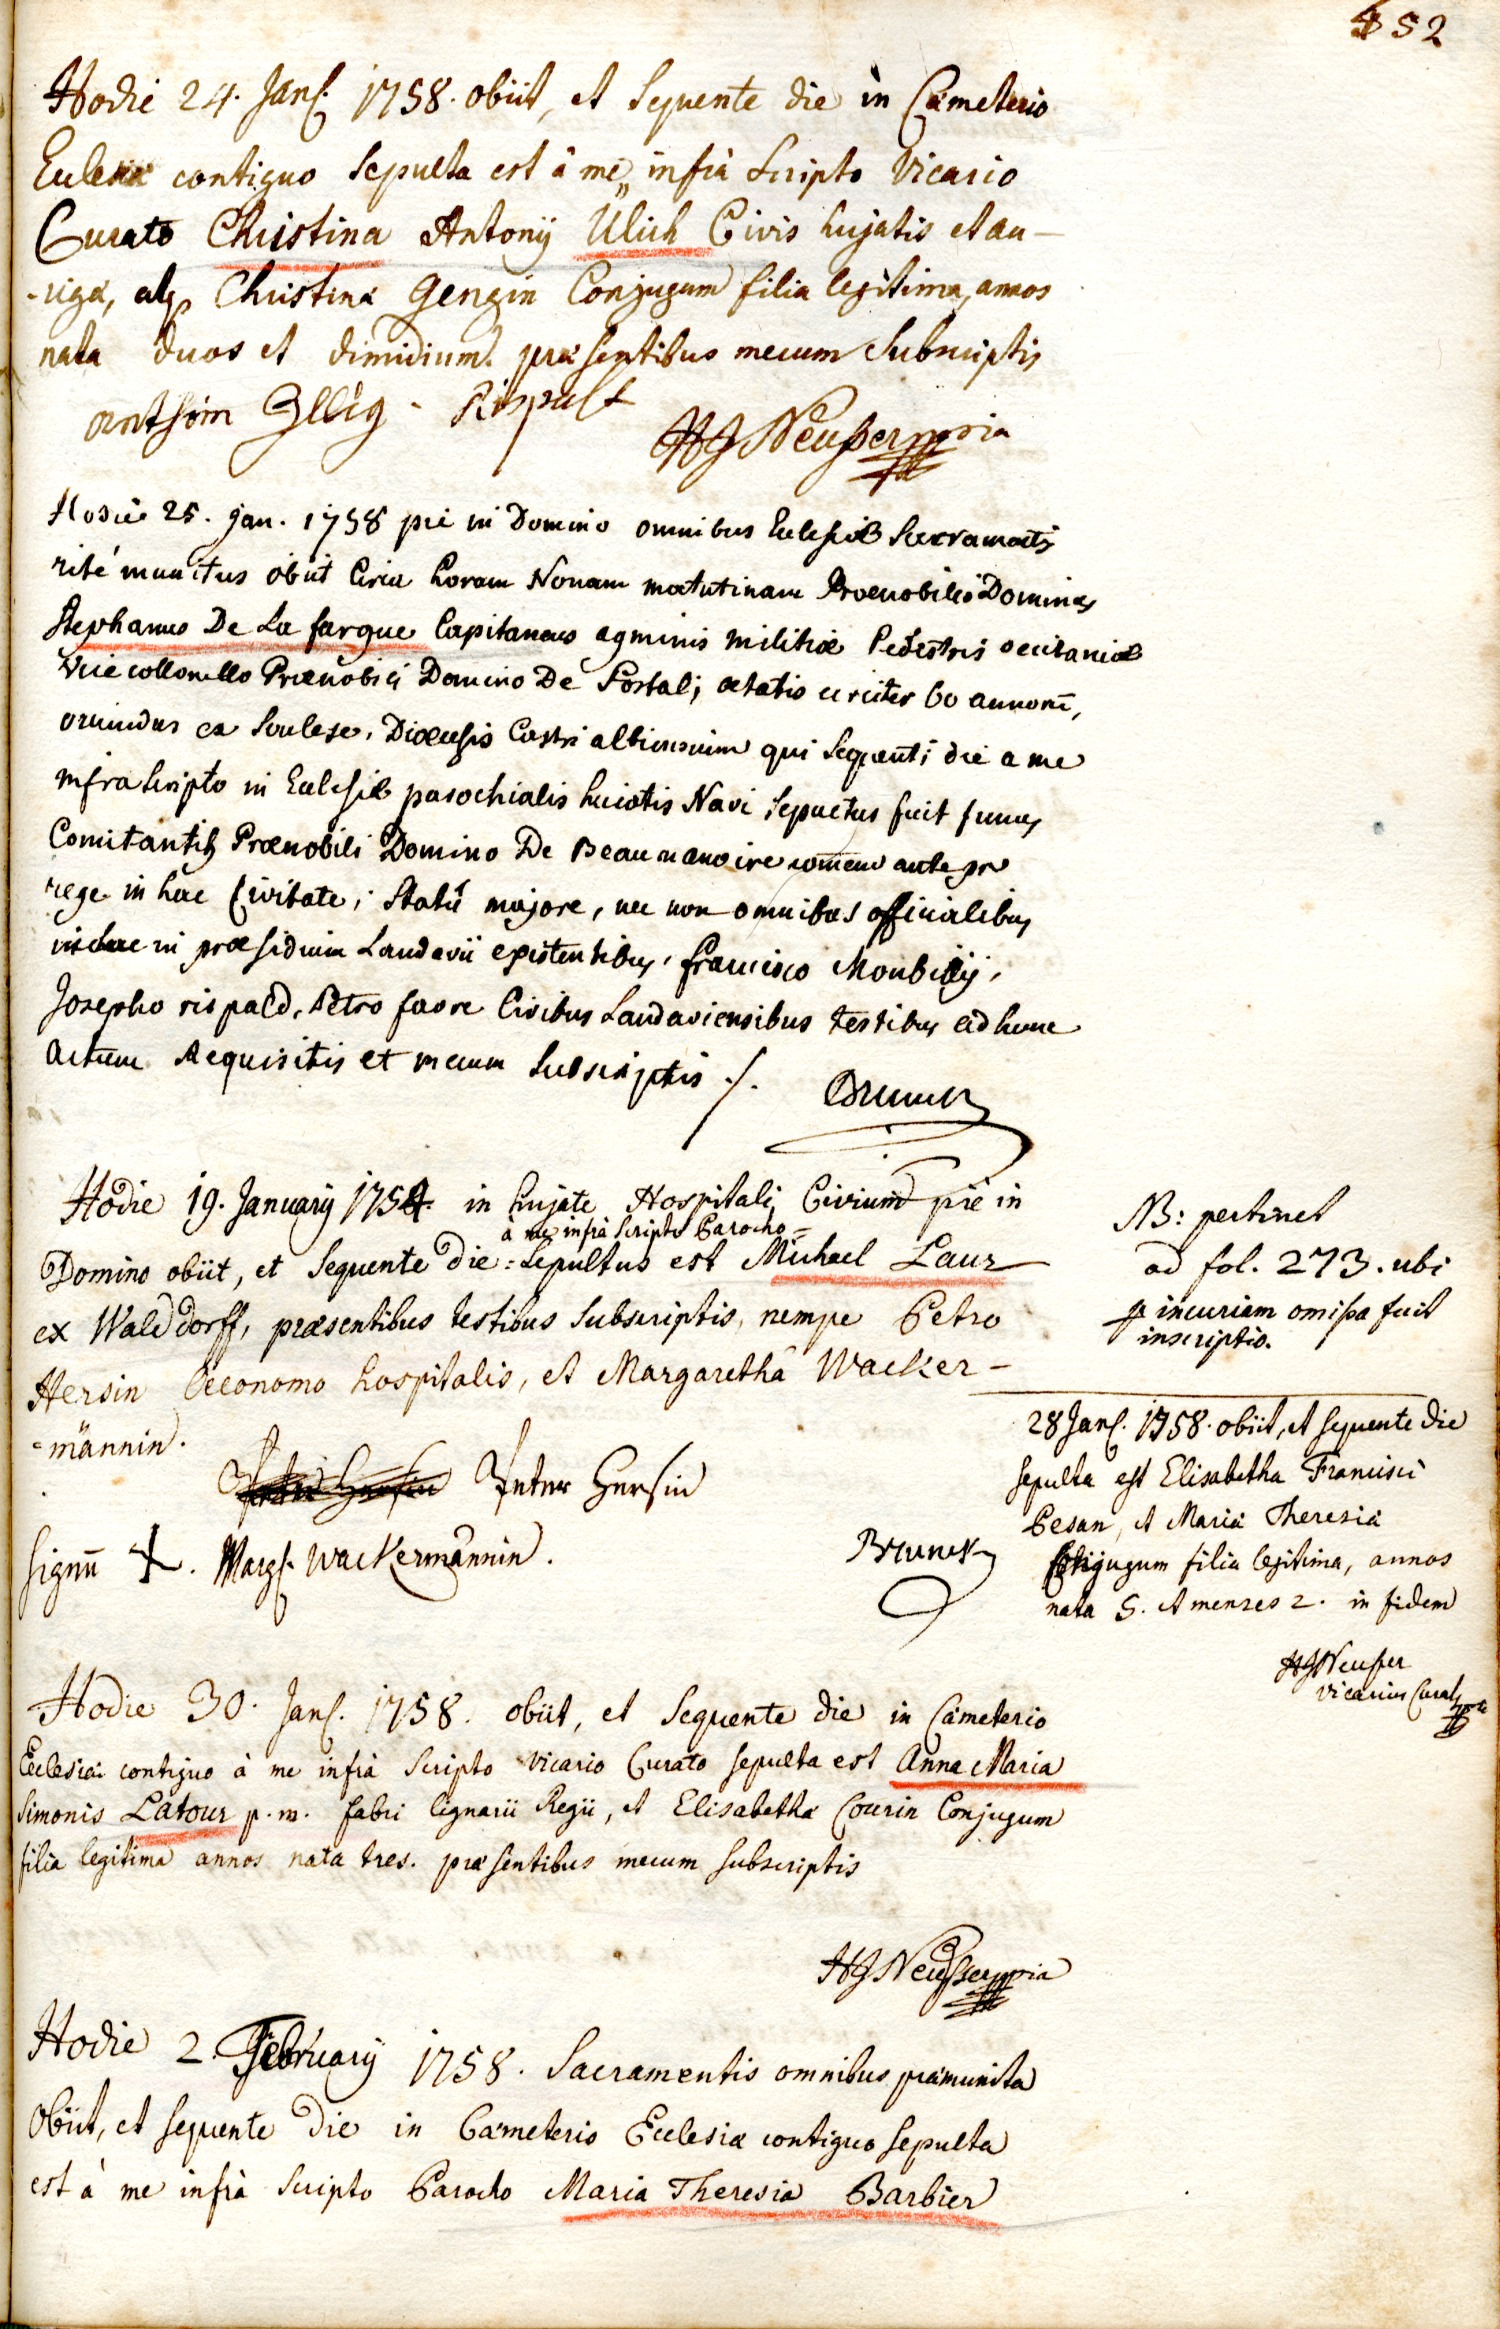 452
Hodie 24. Janr. 1758. obiit, et sequente die in Cæmeterio
Ecclesiæ contiguo sepulta est à me infrà scripto Vicario
Curato Christina Antonij Ülich Civis hujatis et au-
-rigæ, atq Christinæ Gengin Conjugum filia legitima, annos
nata duos et dimidium. præsentibus mecum subscriptis
HJ Neusser mpria
Hodie 25. Jan. 1758 piè in Domino omnibus Ecclesiæ Sacramentis
ritè munitus obiit circa horam Nonam matutinam Prænobilis Dominus
Stephanus De La fargue Capitaneus agminis militiæ Pedestris occitaniæ
vice collonello Prænobili Domino De Portal; ætatis circiter 60 annorū,
oriundus ex Diœcesis qui sequenti die a me
infra scripto in Ecclesiæ parochialis huiatis Navi sepultus fuit funus
Comitantib Prænobili Domino De Beaumanoire comendante pro
rege in hac Civitate, Statū majore, nec non omnibus officialibus
in præsidium Landavii existentibus, francisco
Josepho rispald, Petro favre Civibus Landaviensibus testibus ad hunc
actum Requisitis et mecum subscriptis ./.
Brunck
Hodie 19. January 1754. in hujate Hospitali Civium piè in
à me infrà scripto Parocho =
Domino obiit, et sequente die : sepultus est Michael Laur
ex Walddorff, præsentibus testibus subscriptis, nempe Petro
Hersin Œconomo hospitalis, et Margarethâ Wacker-
=männin.
Peter Hersin
signū +. Margr. Wackermännin.
Brunck
NB: pertinet
ad fol. 273. ubi
p incuriam omissa fuit
inscriptio.
28 Janr. 1758. obiit, et sequente die
sepulta est Elisabetha Francisci
Pesan, et Mariæ Theresiæ
Conjugum filia legitima, annos
nata 5. et menses 2. in fidem
HJ Neusser
vicarius Curat
Hodie 30. Janr. 1758. obiit, et sequente die in Cæmeterio
Ecclesiæ contiguo à me infrà scripto vicario Curato sepulta est Anna Maria
Simonis Latour p.m. fabri lignarii Regii, et Elisabethæ Courin Conjugum
filia legitima annos nata tres. præsentibus mecum subscriptis
HJ Neusser mpria
Hodie 2. February 1758. Sacramentis omnibus præmunita
obiit, et sequente die in Cæmeterio Ecclesiæ contiguo sepulta
est à me infrà scripto Parocho Maria Theresia Barbier